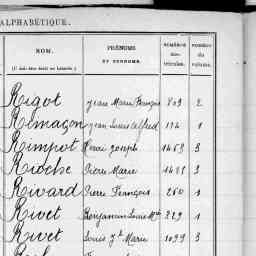 ALPHABÉTIQUE.
NOM. PRÉNOMS ET SURNOMS. NUMÉROS matricules. NUMÉRO du volume.
Rigot Jean Marie François 809 2
Rimaçon Jean Louis Alfred 174 1
Rimpot Henri Joseph 1463 3
Rioche Pierre Marie 1483 3
Rivard Pierre François 260 1
Rivet Benjamin Louis Mie 229 1
Rivet Louis Jh Marie 1099 3